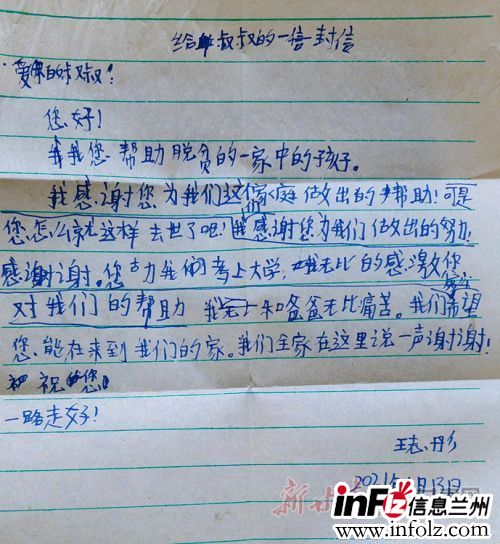 给叔叔的一封信
亲爱的叔叔：
您好！
我是您帮助脱贫的一家中的孩子。
我感谢您为我们这个家庭做出的帮助！可是
您怎么就这样去世了呢！我感谢您为我们做出的努力！
感谢谢。您古力我们考上大学，我无比的感激您
对我们的帮助 我和爸爸无比痛苦。我们希望
您能在来到我们的家。我们全家在这里说一声谢谢！
祝您
一路走好！
王志彤
2021年1月13日
新甘
infLz 信息兰州
www.infolz.com